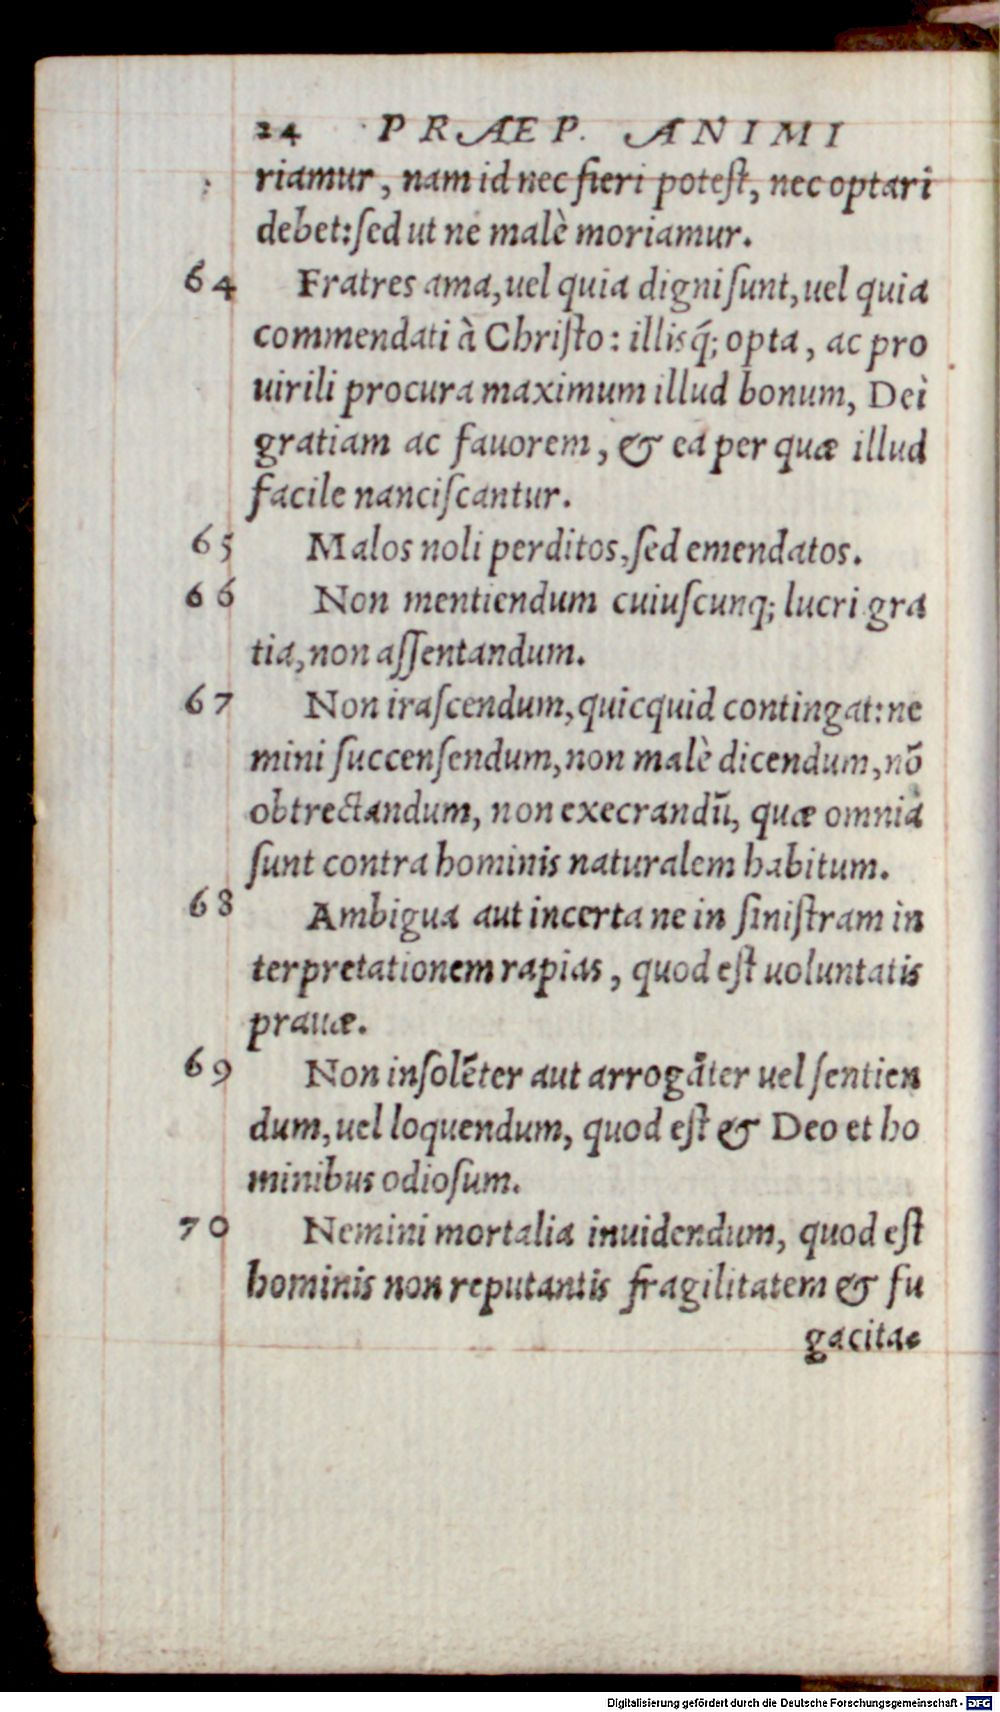 24 PRÆP. ANIMI
riamur, nam id nec fieri potest, nec optari
debet: sed ut ne malè moriamur.
64 Fratres ama, uel quia digni sunt, uel quia
commendati à Christo: illisq́; opta, ac pro
uirili procura maximum illud bonum, Dei
gratiam ac fauorem, & ea per quæ illud
facile nanciscantur.
65 Malos noli perditos, sed emendatos.
66 Non mentiendum cuiuscunq; lucri gra
tia, non assentandum.
67 Non irascendum, quicquid contingat: ne
mini succensendum, non malè dicendum, nō
obtrectandum, non execrandū, quæ omnia
sunt contra hominis naturalem habitum.
68 Ambigua aut incerta ne in sinistram in
terpretationem rapias, quod est uoluntatis
prauæ.
69 Non insolēter aut arrogāter uel sentien
dum, uel loquendum, quod est & Deo et ho
minibus odiosum.
70 Nemini mortalia inuidendum, quod est
hominis non reputantis fragilitatem & fu
gacita-
Digitalisierung gefördert durch die Deutsche Forschungsgemeinschaft - DFG